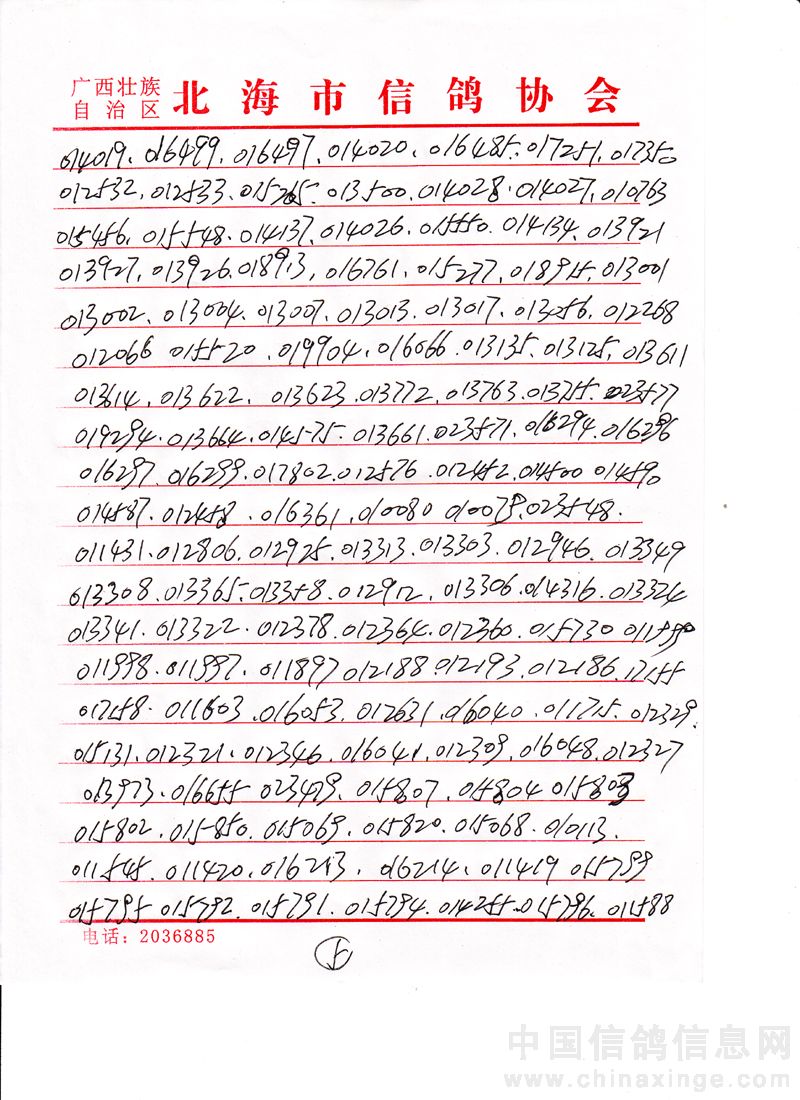 广西壮族
自治区 北海市信鸽协会
014019、016499、016497、014020、016485、017251、017350
012532、012533、015265、013500、014028、014027、010763
015456、015548、014137、014026、015550、014134、013921
013927、013926、018913、016761、015277、018915、013001
013002、013004、013007、013013、013017、013056、012268
012066 015520、019904、016066、013135、013125、013611
013614、013622、013623、013772、013763、013755、023577
019294、013664、014575、013661、023571、016294、016296
016297、016299、017802、012576、012452、014500 014590
014587、012458、016361、010080 010079、023548、
011431、012806、012925、013313、013303、012946、013349
013308、013365、013358、012912、013306、014316、013324
013341、013322、012378、012364、012360、015730
011998、011997、011897 012188、012193、012186、17155
017158、011603、016053、012631、016040、011715、012329、
015131、012321、012346、016041、012309、016048、012327
013973、016655 023479、015807、015804
015802、015850、015069、015820、015068、010113、
011545、011420、016213、016214、011419 015799
015795、015792、015791、015794、014255、015796、011588
电话：2036885
中国信鸽信息网
www.chinaxinge.com